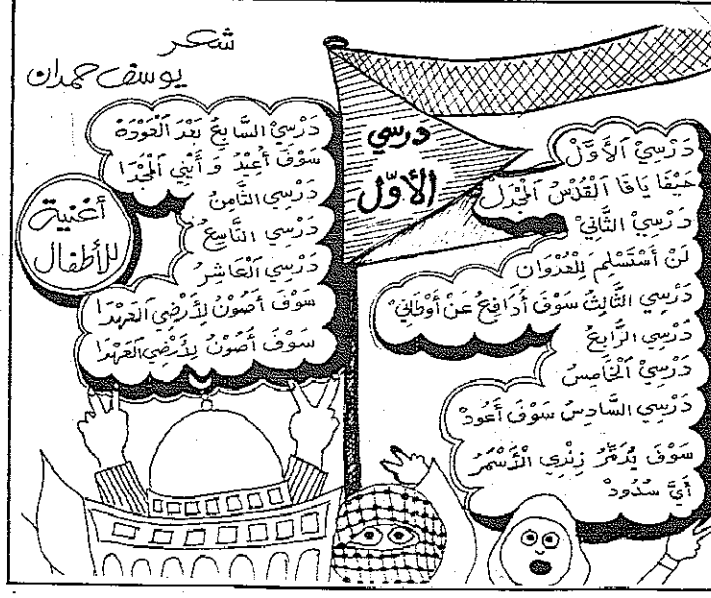 شعر
يوسف حمدان
درسي
الأوّل
أغنية
للأطفال
دَرْسِيْ الأَوَّلْ
حَيْفَا يَافَا القُدْسُ المَجْدَلْ
دَرْسِيْ الثَّانِيْ
لَنْ أَسْتَسْلِمَ لِلْعُدْوَانِ
دَرْسِي الثَّالِثُ سَوْفَ أُدَافِعُ عَنْ أَوْطَانِيْ
دَرْسِي الرَّابِعُ
دَرْسِيْ الخَامِسُ
دَرْسِي السَّادِسُ سَوْفَ أَعُودْ
سَوْفَ يُدَمِّرُ زِنْدِي الْأَسْمَرُ
أَيَّ سُدُودْ
دَرْسِيْ السَّابِعُ بَعْدَ الْعَوْدَة
سَوْفَ أُعِيْدُ وَ أَبْنِي المَجْدَا
دَرْسِي الثَّامِنُ
دَرْسِي التَّاسِعُ
دَرْسِي العَاشِرُ
سَوْفَ أَصُوْنُ لِأَرْضِي العَهْدَا
سَوْفَ أَصُوْنُ لِأَرْضِي العَهْدَا